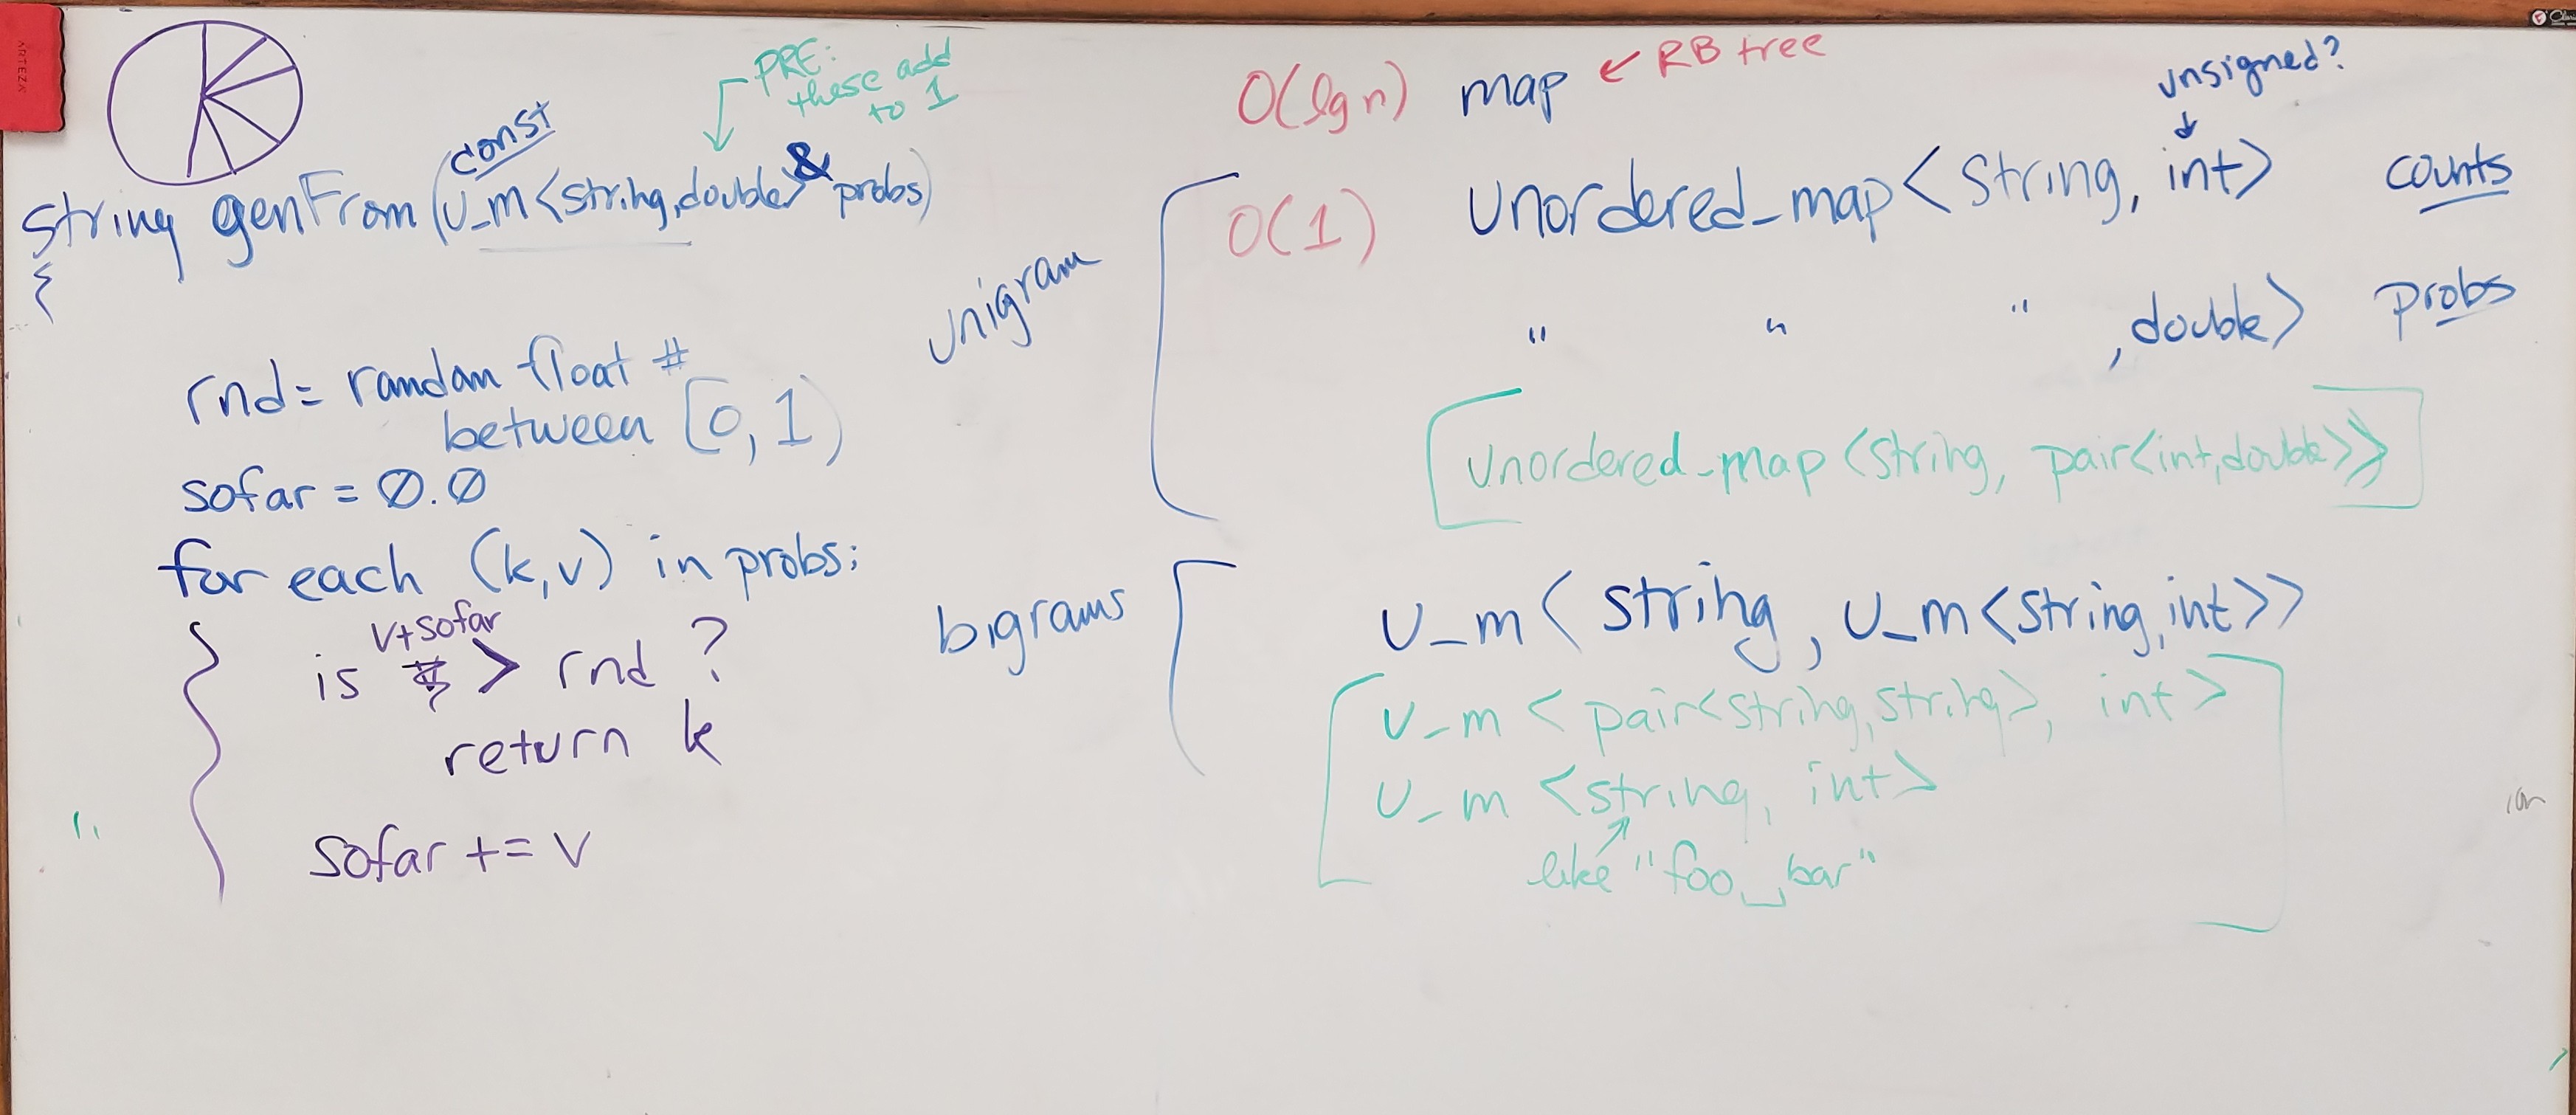 ARTEZA
PRE:
these add
to 1
const
string genFrom(u_m<string,double>& probs)
{
rnd = random float #
between [0, 1)
sofar = 0.0
for each (k,v) in probs:
v+sofar
is > rnd ?
return k
sofar += v
O(lg n) map ← RB tree
unsigned?
unigram
O(1) unordered_map<string, int> counts
" " " , double> probs
unordered_map<string, pair<int,double>>
bigrams
u_m<string, u_m<string,int>>
u_m<pair<string,string>, int>
u_m<string, int>
like "foo␣bar"